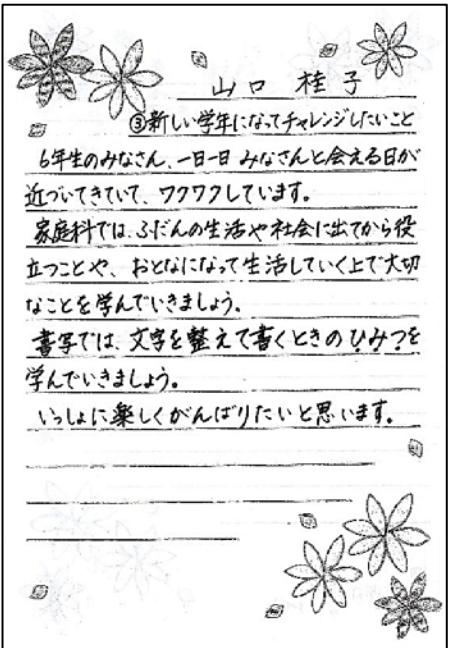 山口 桂子
③新しい学年になってチャレンジしたいこと
6年生のみなさん、一日一日 みなさんと会える日が
近づいてきていて、ワクワクしています。
家庭科では、ふだんの生活や社会に出てから役
立つことや、おとなになって生活していく上で大切
なことを学んでいきましょう。
書写では、文字を整えて書くときのひみつを
学んでいきましょう。
いっしょに楽しくがんばりたいと思います。